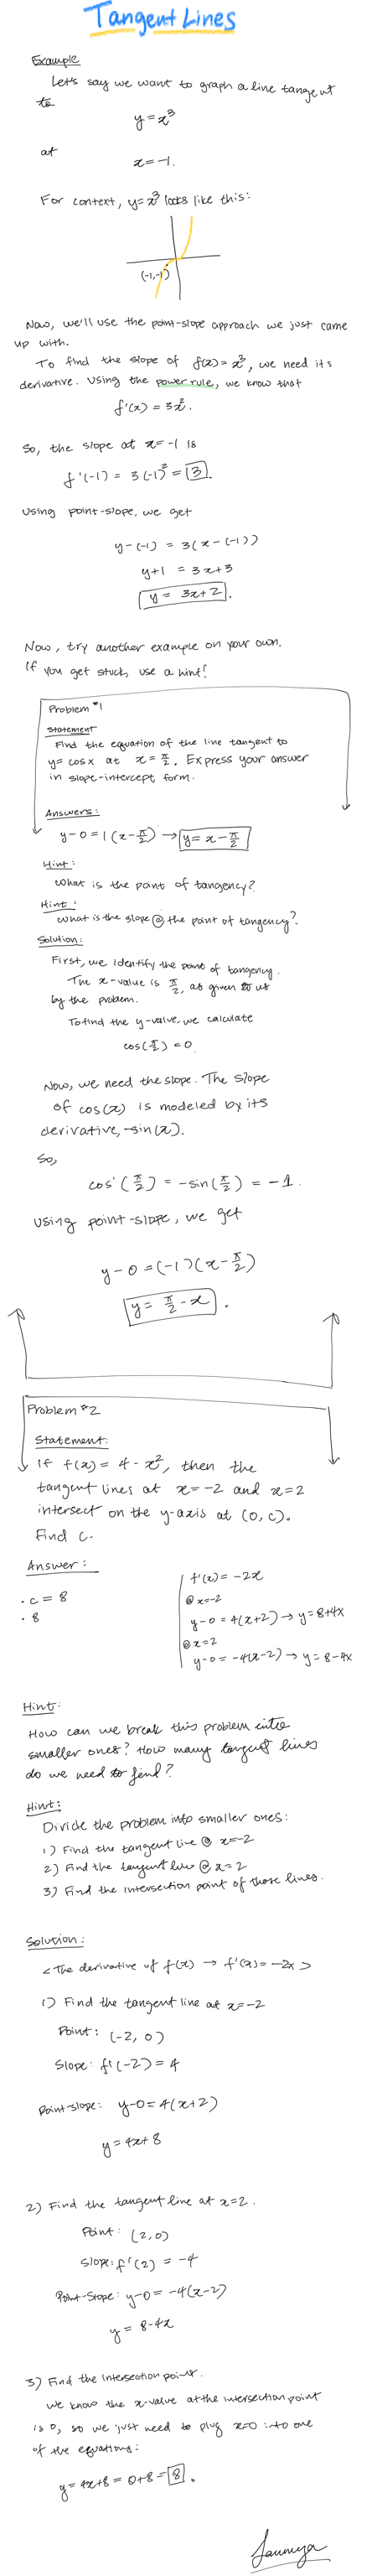 Tangent Lines
Example
Let's say we want to graph a line tangent
to
y = x³
at
x = -1.
For context, y = x³ looks like this:
(-1,-1)
Now, we'll use the point-slope approach we just came
up with.
To find the slope of f(x) = x³, we need its
derivative. Using the power rule, we know that
f'(x) = 3x².
So, the slope at x = -1 is
f'(-1) = 3(-1)² = 3.
Using point-slope, we get
y-(-1) = 3(x-(-1))
y+1 = 3x+3
y = 3x+2.
Now, try another example on your own.
If you get stuck, use a hint!
Problem #1
Statement
Find the equation of the line tangent to
y = cosx at x = π/2. Express your answer
in slope-intercept form.
Answers:
y-0 = 1(x-π/2) → y = x-π/2
Hint:
What is the point of tangency?
Hint:
What is the slope @ the point of tangency?
Solution:
First, we identify the point of tangency.
The x-value is π/2, as given to us
by the problem.
To find the y-value, we calculate
cos(π/2) = 0.
Now, we need the slope. The slope
of cos(x) is modeled by its
derivative, -sin(x).
So,
cos'(π/2) = -sin(π/2) = -1.
Using point-slope, we get
y-0 = (-1)(x-π/2)
y = π/2 - x.
Problem #2
Statement:
If f(x) = 4-x², then the
tangent lines at x = -2 and x = 2
intersect on the y-axis at (0, c).
Find c.
Answer:
· c = 8
· 8
f'(x) = -2x
@ x=-2
y-0 = 4(x+2) → y = 8+4x
@ x=2
y-0 = -4(x-2) → y = 8-4x
Hint:
How can we break this problem into
smaller ones? How many tangent lines
do we need to find?
Hint:
Divide the problem into smaller ones:
1) Find the tangent line @ x=-2
2) Find the tangent line @ x=2
3) Find the intersection point of those lines.
Solution:
<The derivative of f(x) → f'(x) = -2x>
1) Find the tangent line at x=-2
Point: (-2, 0)
Slope: f'(-2) = 4
Point-slope: y-0 = 4(x+2)
y = 4x+8
2) Find the tangent line at x=2.
Point: (2,0)
Slope: f'(2) = -4
Point-Slope: y-0 = -4(x-2)
y = 8-4x
3) Find the intersection point.
We know the x-value at the intersection point
is 0, so we just need to plug x=0 into one
of the equations:
y = 4x+8 = 0+8 = 8.
Saumya